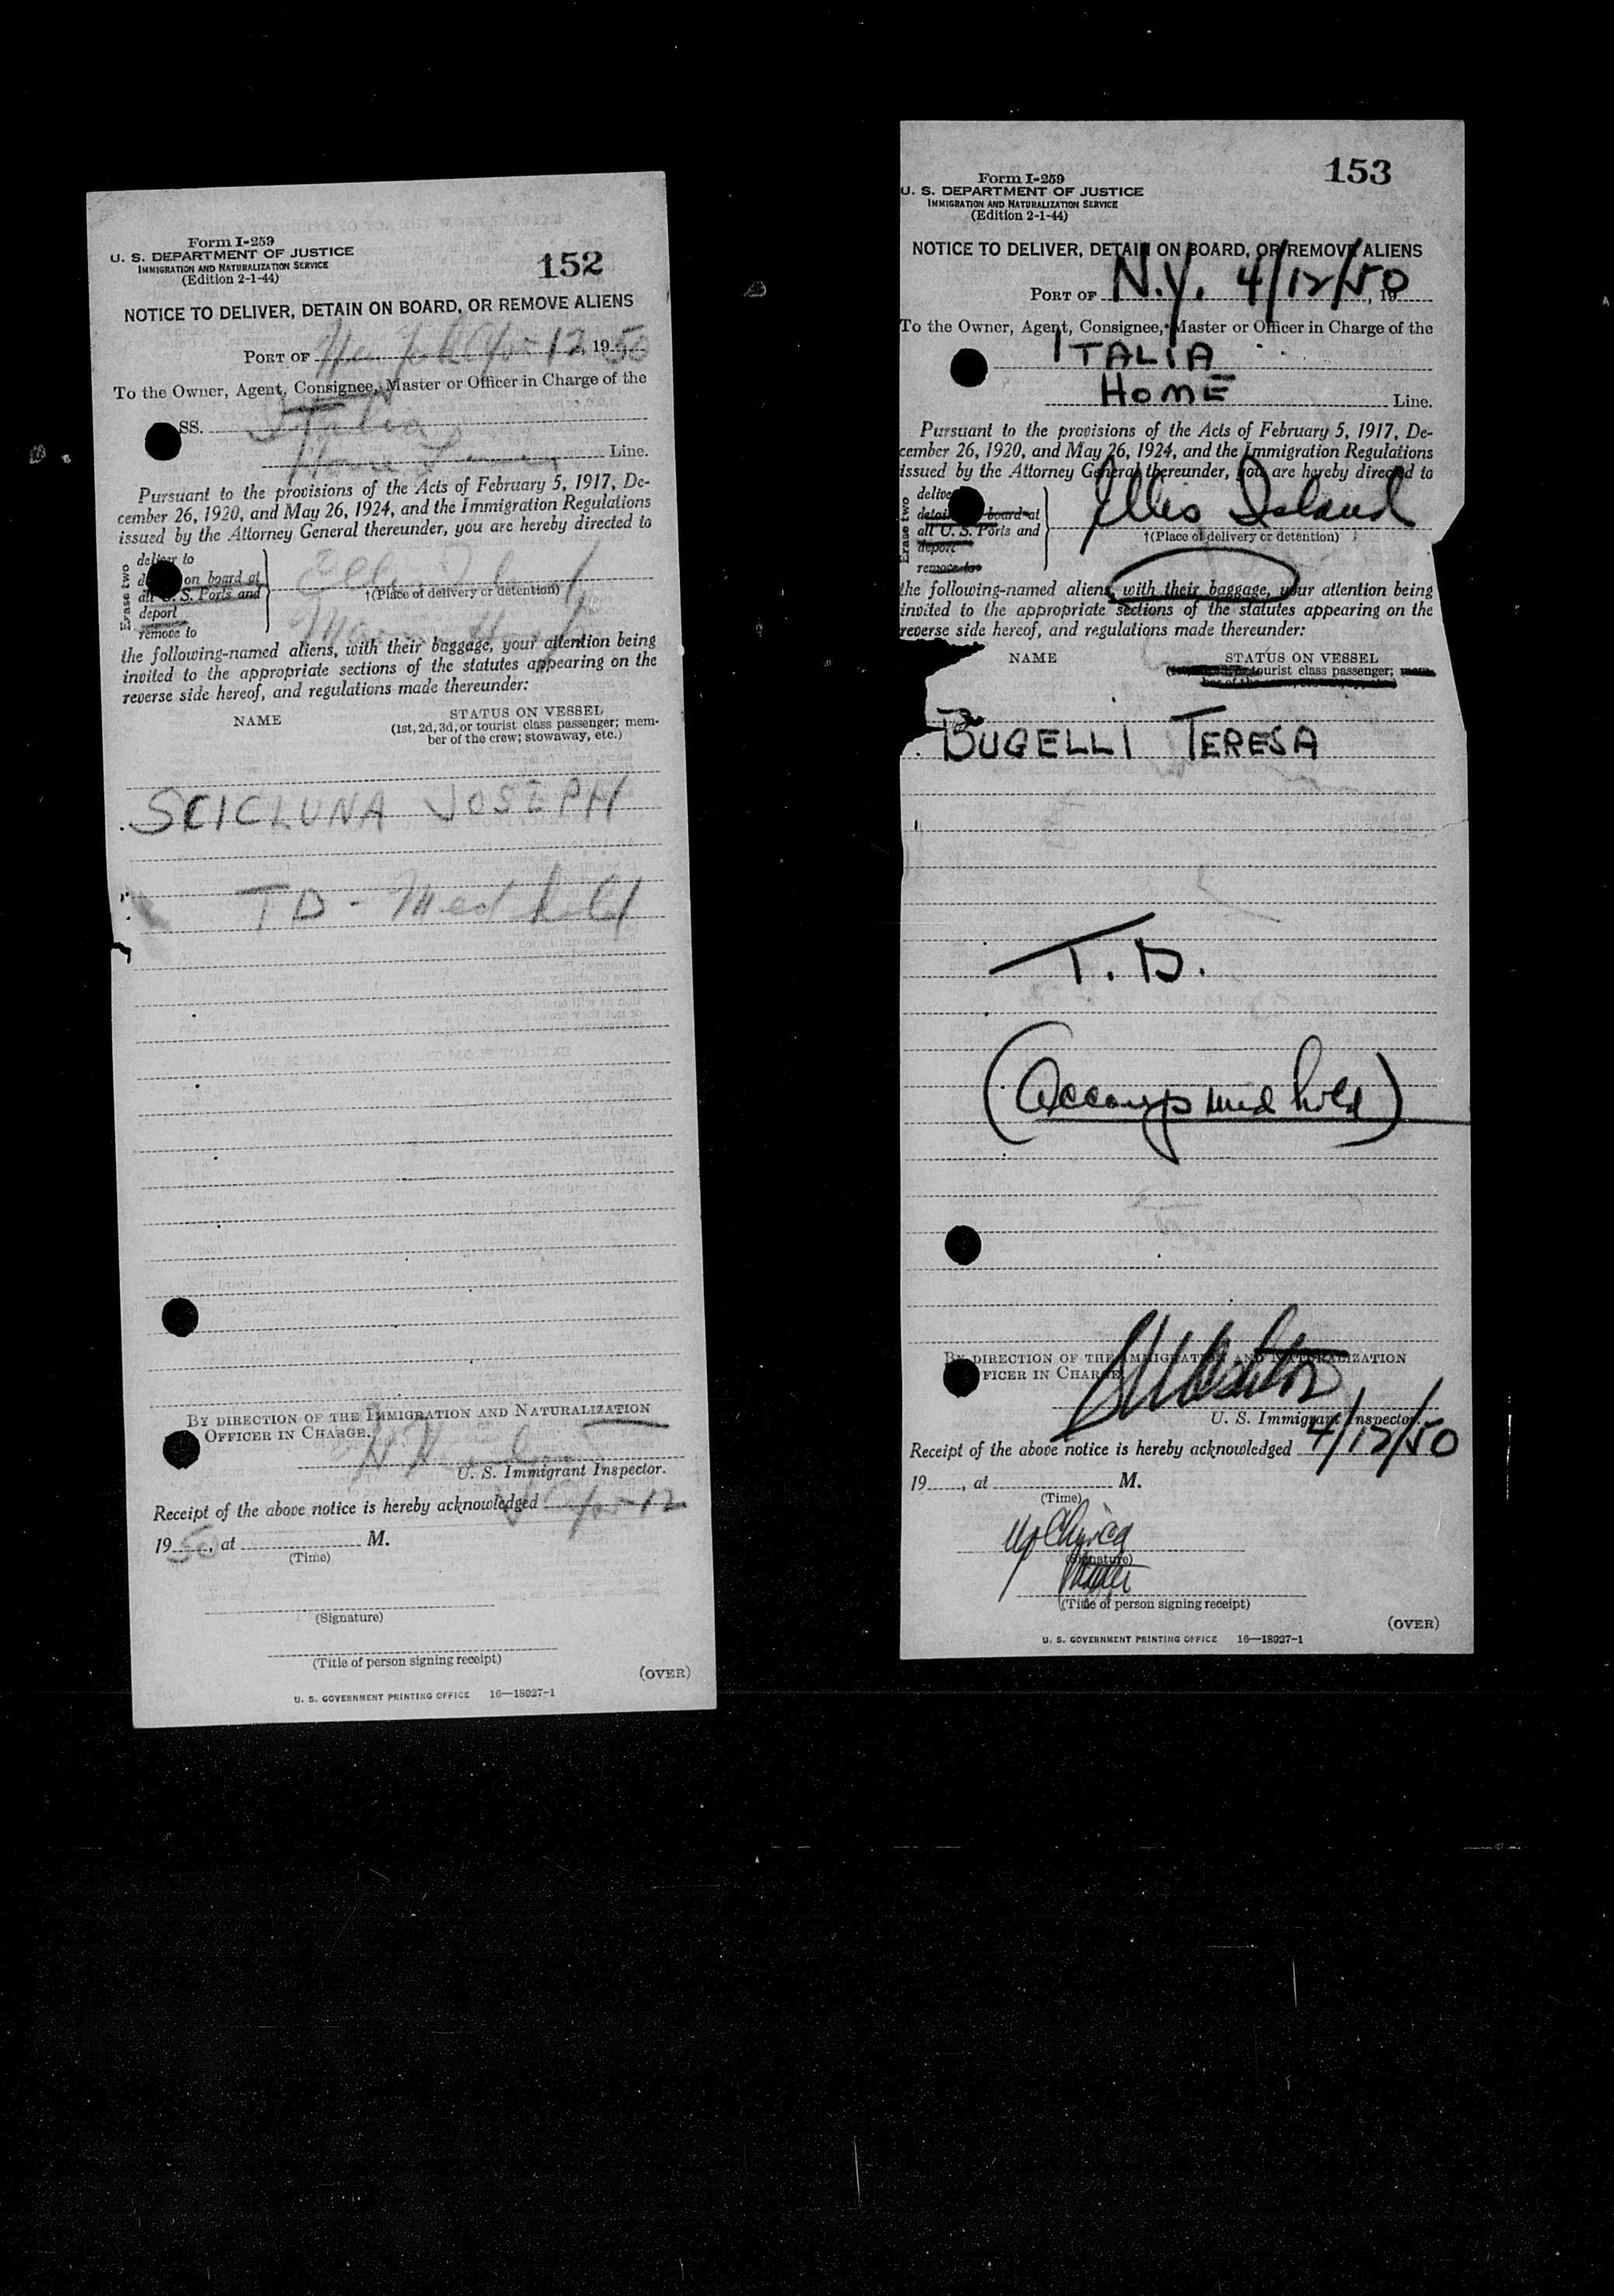 Form I-259
U. S. DEPARTMENT OF JUSTICE
IMMIGRATION AND NATURALIZATION SERVICE
(Edition 2-1-44)
152
NOTICE TO DELIVER, DETAIN ON BOARD, OR REMOVE ALIENS
PORT OF New York Apr 12, 1950
To the Owner, Agent, Consignee, Master or Officer in Charge of the
SS. Italia
Home Line.
Pursuant to the provisions of the Acts of February 5, 1917, De-
cember 26, 1920, and May 26, 1924, and the Immigration Regulations
issued by the Attorney General thereunder, you are hereby directed to
Erase two
deliver to
on board at
all U. S. Ports and
deport
remove to
Ellis Island
†(Place of delivery or detention)
the following-named aliens, with their baggage, your attention being
invited to the appropriate sections of the statutes appearing on the
reverse side hereof, and regulations made thereunder:
NAME
STATUS ON VESSEL
(1st, 2d, 3d, or tourist class passenger; mem-
ber of the crew; stowaway, etc.)
SCICLUNA JOSEPH
TD - Med hold
BY DIRECTION OF THE IMMIGRATION AND NATURALIZATION
OFFICER IN CHARGE.
U. S. Immigrant Inspector.
Receipt of the above notice is hereby acknowledged Apr 12
1950, at M.
(Time)
(Signature)
(Title of person signing receipt)
(OVER)
U. S. GOVERNMENT PRINTING OFFICE 16—18927-1
153
Form I-259
U. S. DEPARTMENT OF JUSTICE
IMMIGRATION AND NATURALIZATION SERVICE
(Edition 2-1-44)
NOTICE TO DELIVER, DETAIN ON BOARD, OR REMOVE ALIENS
PORT OF N.Y. 4/12/50, 19
To the Owner, Agent, Consignee, Master or Officer in Charge of the
ITALIA
HOME Line.
Pursuant to the provisions of the Acts of February 5, 1917, De-
cember 26, 1920, and May 26, 1924, and the Immigration Regulations
issued by the Attorney General thereunder, you are hereby directed to
Erase two
board at
all U. S. Ports and
deport
remove to
Ellis Island
†(Place of delivery or detention)
the following-named aliens, with their baggage, your attention being
invited to the appropriate sections of the statutes appearing on the
reverse side hereof, and regulations made thereunder:
NAME
STATUS ON VESSEL
tourist class passenger;
BUGELLI TERESA
T.D.
(Accomp med hold)
BY DIRECTION OF THE IMMIGRATION AND NATURALIZATION
FICER IN CHARGE
U. S. Immigrant Inspector.
Receipt of the above notice is hereby acknowledged 4/12/50
19, at M.
(Time)
(Signature)
(Title of person signing receipt)
(OVER)
U. S. GOVERNMENT PRINTING OFFICE 16—18927-1